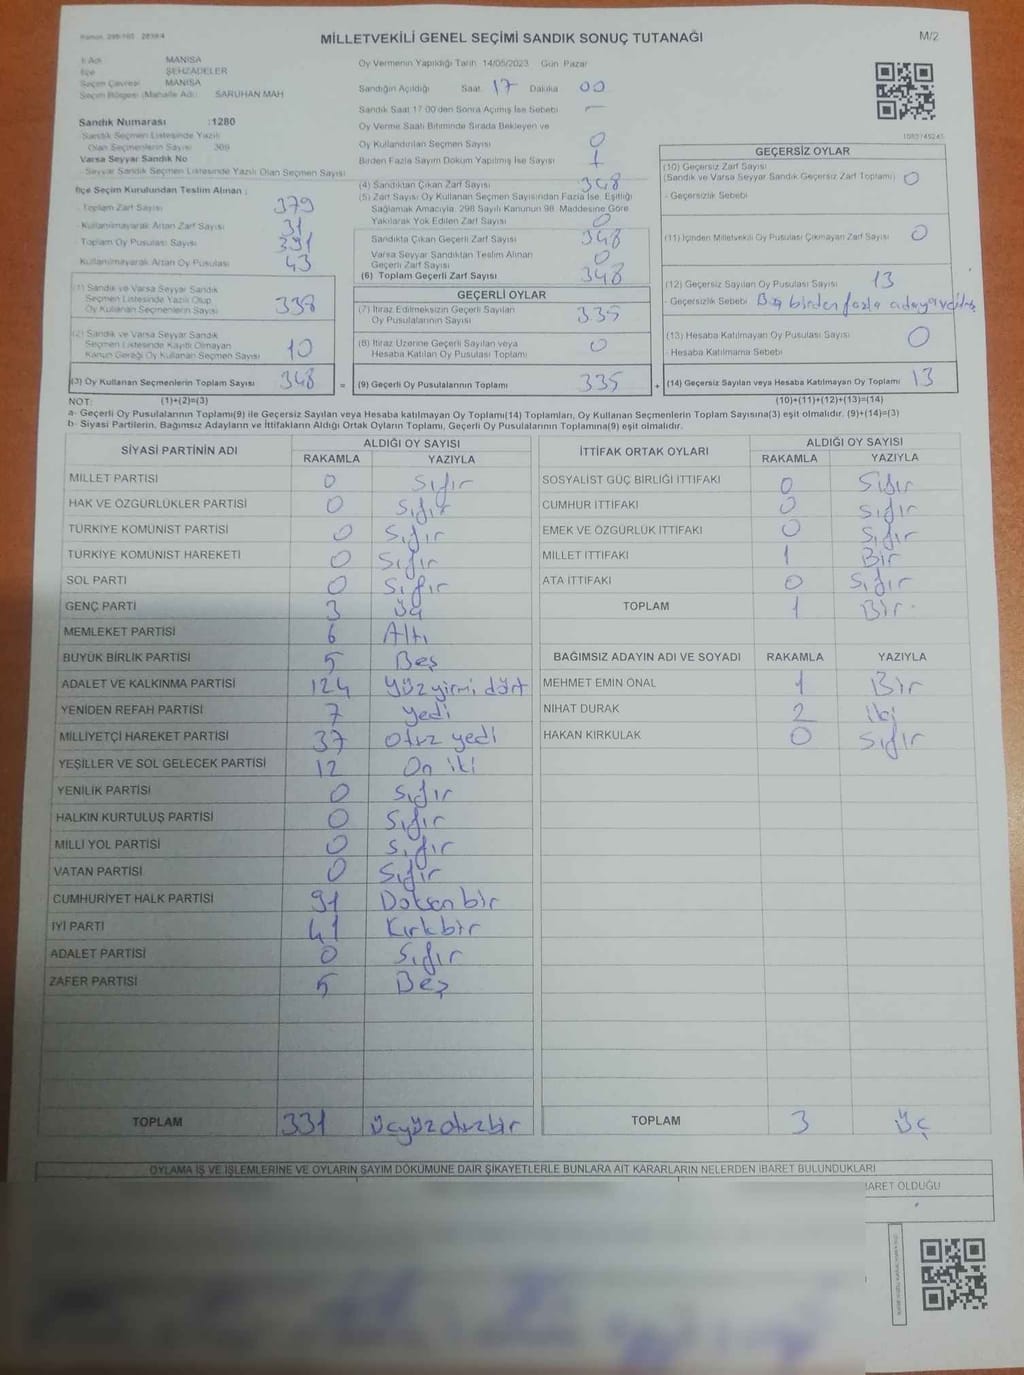 MİLLETVEKİLİ GENEL SEÇİMİ SANDIK SONUÇ TUTANAĞI
M/2
MANİSA
İlçe ŞEHZADELER
Seçim Çevresi MANİSA
Seçim Bölgesi (Mahalle Adı) SARUHAN MAH
Sandık Numarası :1280
Sandık Seçmen Listesinde Yazılı
Olan Seçmenlerin Sayısı 369
Varsa Seyyar Sandık No
Seyyar Sandık Seçmen Listesinde Yazılı Olan Seçmen Sayısı
Oy Vermenin Yapıldığı Tarih 14/05/2023 Gün Pazar
Sandığın Açıldığı Saat 17 Dakika 00
Sandık Saat 17 00'den Sonra Açılmış İse Sebebi —
Oy Verme Saati Bitiminde Sırada Bekleyen ve
Oy Kullandırılan Seçmen Sayısı 0
Birden Fazla Sayım Döküm Yapılmış İse Sayısı 1
İlçe Seçim Kurulundan Teslim Alınan :
- Toplam Zarf Sayısı 379
- Kullanılmayarak Artan Zarf Sayısı 31
- Toplam Oy Pusulası Sayısı 391
- Kullanılmayarak Artan Oy Pusulası 43
(1) Sandık ve Varsa Seyyar Sandık
Seçmen Listesinde Yazılı Olup
Oy Kullanan Seçmenlerin Sayısı 338
(2) Sandık ve Varsa Seyyar Sandık
Seçmen Listesinde Kayıtlı Olmayan
Kanun Gereği Oy Kullanan Seçmen Sayısı 10
(3) Oy Kullanan Seçmenlerin Toplam Sayısı 348 =
(4) Sandıktan Çıkan Zarf Sayısı 348
(5) Zarf Sayısı Oy Kullanan Seçmen Sayısından Fazla İse, Eşitliği
Sağlamak Amacıyla, 298 Sayılı Kanunun 98. Maddesine Göre
Yakılarak Yok Edilen Zarf Sayısı 0
Sandıkta Çıkan Geçerli Zarf Sayısı 348
Varsa Seyyar Sandıktan Teslim Alınan
Geçerli Zarf Sayısı 0
(6) Toplam Geçerli Zarf Sayısı 348
GEÇERLİ OYLAR
(7) İtiraz Edilmeksizin Geçerli Sayılan
Oy Pusulalarının Sayısı 335
(8) İtiraz Üzerine Geçerli Sayılan veya
Hesaba Katılan Oy Pusulası Toplamı 0
(9) Geçerli Oy Pusulalarının Toplamı 335 +
GEÇERSİZ OYLAR
(10) Geçersiz Zarf Sayısı
(Sandık ve Varsa Seyyar Sandık Geçersiz Zarf Toplamı) 0
- Geçersizlik Sebebi
(11) İçinden Milletvekili Oy Pusulası Çıkmayan Zarf Sayısı 0
(12) Geçersiz Sayılan Oy Pusulası Sayısı 13
- Geçersizlik Sebebi birden fazla adaya
(13) Hesaba Katılmayan Oy Pusulası Sayısı 0
- Hesaba Katılmama Sebebi
(14) Geçersiz Sayılan veya Hesaba Katılmayan Oy Toplamı 13
NOT: (1)+(2)=(3) (10)+(11)+(12)+(13)=(14)
a- Geçerli Oy Pusulalarının Toplamı(9) ile Geçersiz Sayılan veya Hesaba katılmayan Oy Toplamı(14) Toplamları, Oy Kullanan Seçmenlerin Toplam Sayısına(3) eşit olmalıdır. (9)+(14)=(3)
b- Siyasi Partilerin, Bağımsız Adayların ve İttifakların Aldığı Ortak Oyların Toplamı, Geçerli Oy Pusulalarının Toplamına(9) eşit olmalıdır.
SİYASİ PARTİNİN ADI ALDIĞI OY SAYISI
RAKAMLA YAZIYLA
MİLLET PARTİSİ 0 Sıfır
HAK VE ÖZGÜRLÜKLER PARTİSİ 0 Sıfır
TÜRKİYE KOMÜNİST PARTİSİ 0 Sıfır
TÜRKİYE KOMÜNİST HAREKETİ 0 Sıfır
SOL PARTİ 0 Sıfır
GENÇ PARTİ 3 Üç
MEMLEKET PARTİSİ 6 Altı
BÜYÜK BİRLİK PARTİSİ 5 Beş
ADALET VE KALKINMA PARTİSİ 124 Yüzyirmi dört
YENİDEN REFAH PARTİSİ 7 Yedi
MİLLİYETÇİ HAREKET PARTİSİ 37 Otuz yedi
YEŞİLLER VE SOL GELECEK PARTİSİ 12 On iki
YENİLİK PARTİSİ 0 Sıfır
HALKIN KURTULUŞ PARTİSİ 0 Sıfır
MİLLİ YOL PARTİSİ 0 Sıfır
VATAN PARTİSİ 0 Sıfır
CUMHURİYET HALK PARTİSİ 91 Doksan bir
İYİ PARTİ 41 Kırk bir
ADALET PARTİSİ 0 Sıfır
ZAFER PARTİSİ 5 Beş
TOPLAM 331 Üçyüz otuzbir
İTTİFAK ORTAK OYLARI ALDIĞI OY SAYISI
RAKAMLA YAZIYLA
SOSYALİST GÜÇ BİRLİĞİ İTTİFAKI 0 Sıfır
CUMHUR İTTİFAKI 0 Sıfır
EMEK VE ÖZGÜRLÜK İTTİFAKI 0 Sıfır
MİLLET İTTİFAKI 1 Bir
ATA İTTİFAKI 0 Sıfır
TOPLAM 1 Bir
BAĞIMSIZ ADAYIN ADI VE SOYADI RAKAMLA YAZIYLA
MEHMET EMİN ÖNAL 1 Bir
NİHAT DURAK 2 iki
HAKAN KIRKULAK 0 Sıfır
TOPLAM 3 Üç
OYLAMA İŞ VE İŞLEMLERİNE VE OYLARIN SAYIM DÖKÜMÜNE DAİR ŞİKAYETLERLE BUNLARA AİT KARARLARIN NELERDEN İBARET BULUNDUKLARI
BARET OLDUĞU